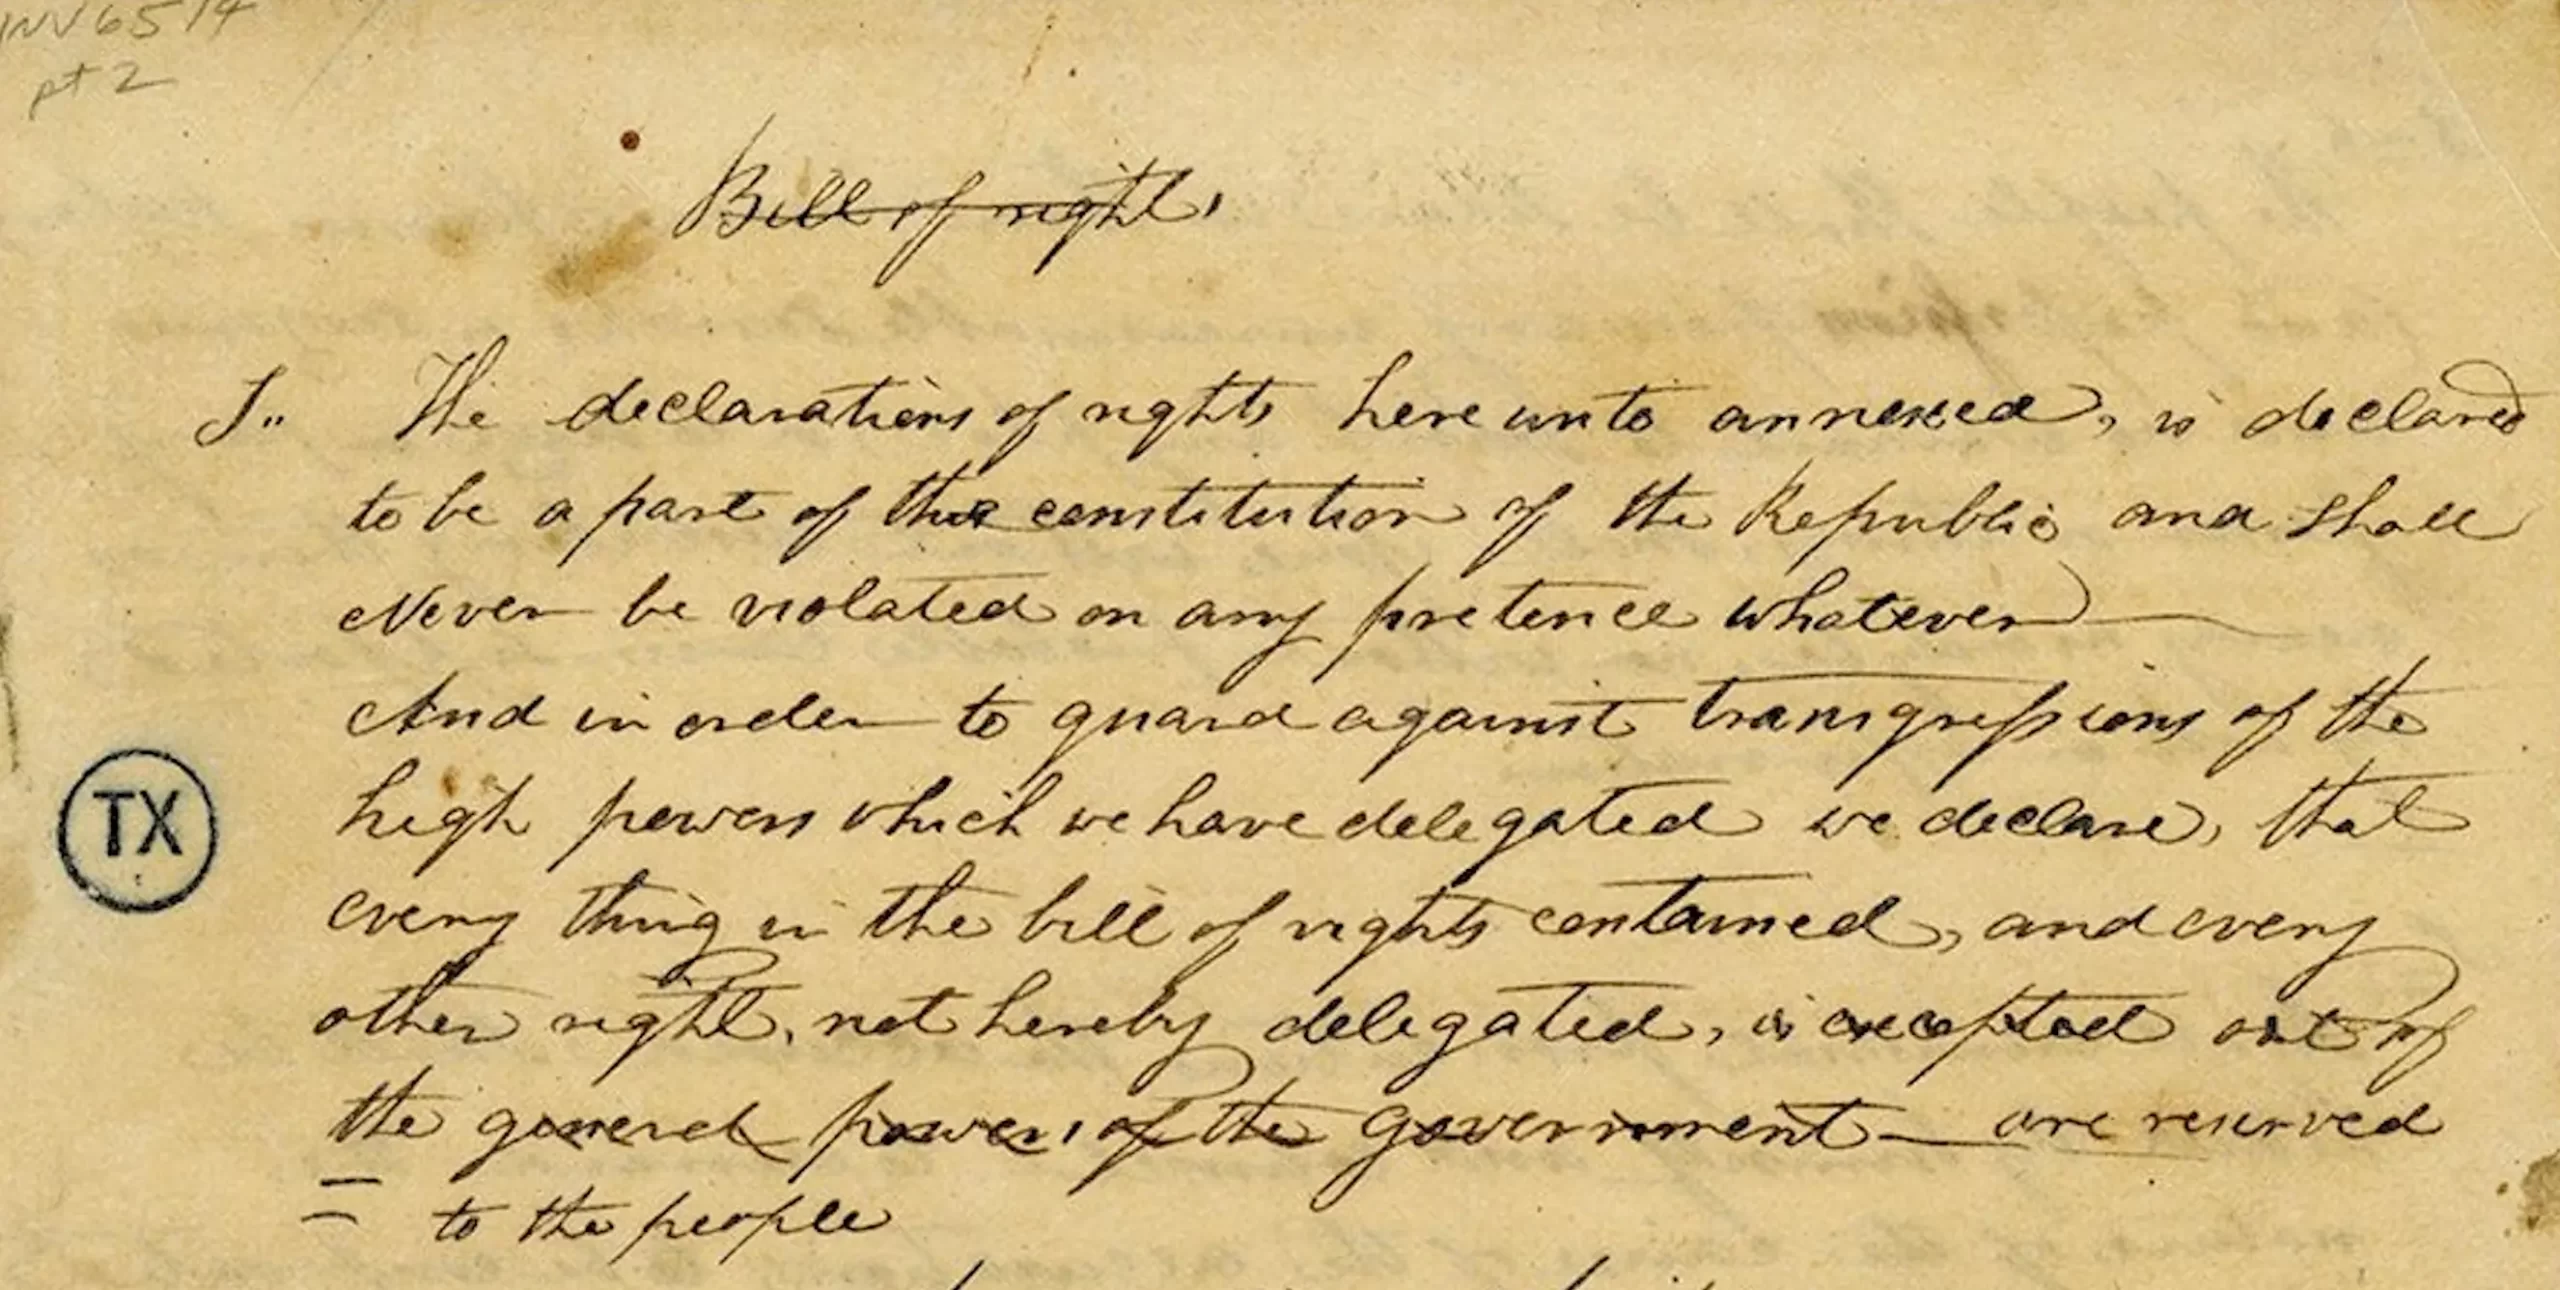 INV 6514
pt 2
Bill of right,
I.. The declarations of rights here unto annexed, is declared
to be a part of the constitution of the Republic and shall
Never be violated on any pretence whatever
And in order to guard against transgressions of the
high powers which we have delegated we declare, that
TX
every thing in the bill of rights contained, and every
other right, not hereby delegated, is excepted out of
the general powers of the government — are reserved
= to the people